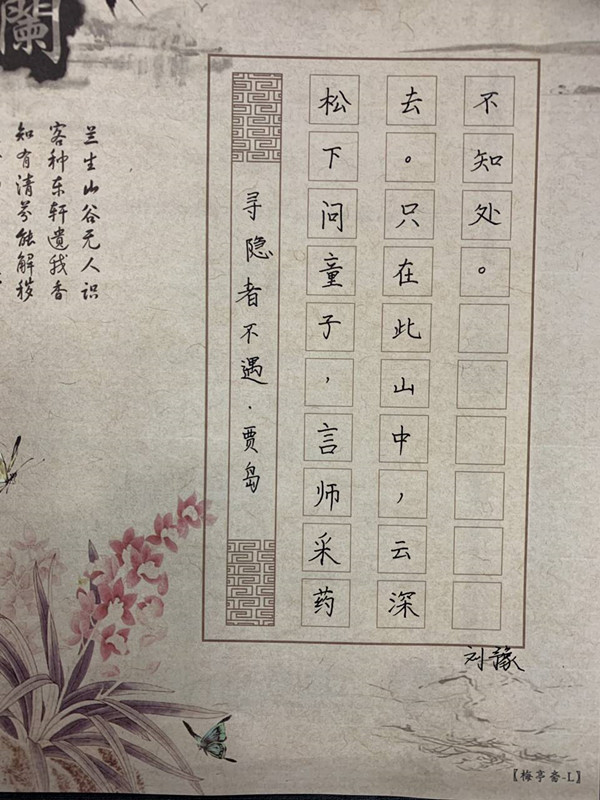 兰生山谷无人识
客种东轩遗我香
知有清芬能解秽
寻隐者不遇·贾岛
松下问童子，言师采药
去。只在此山中，云深
不知处。
刘豫